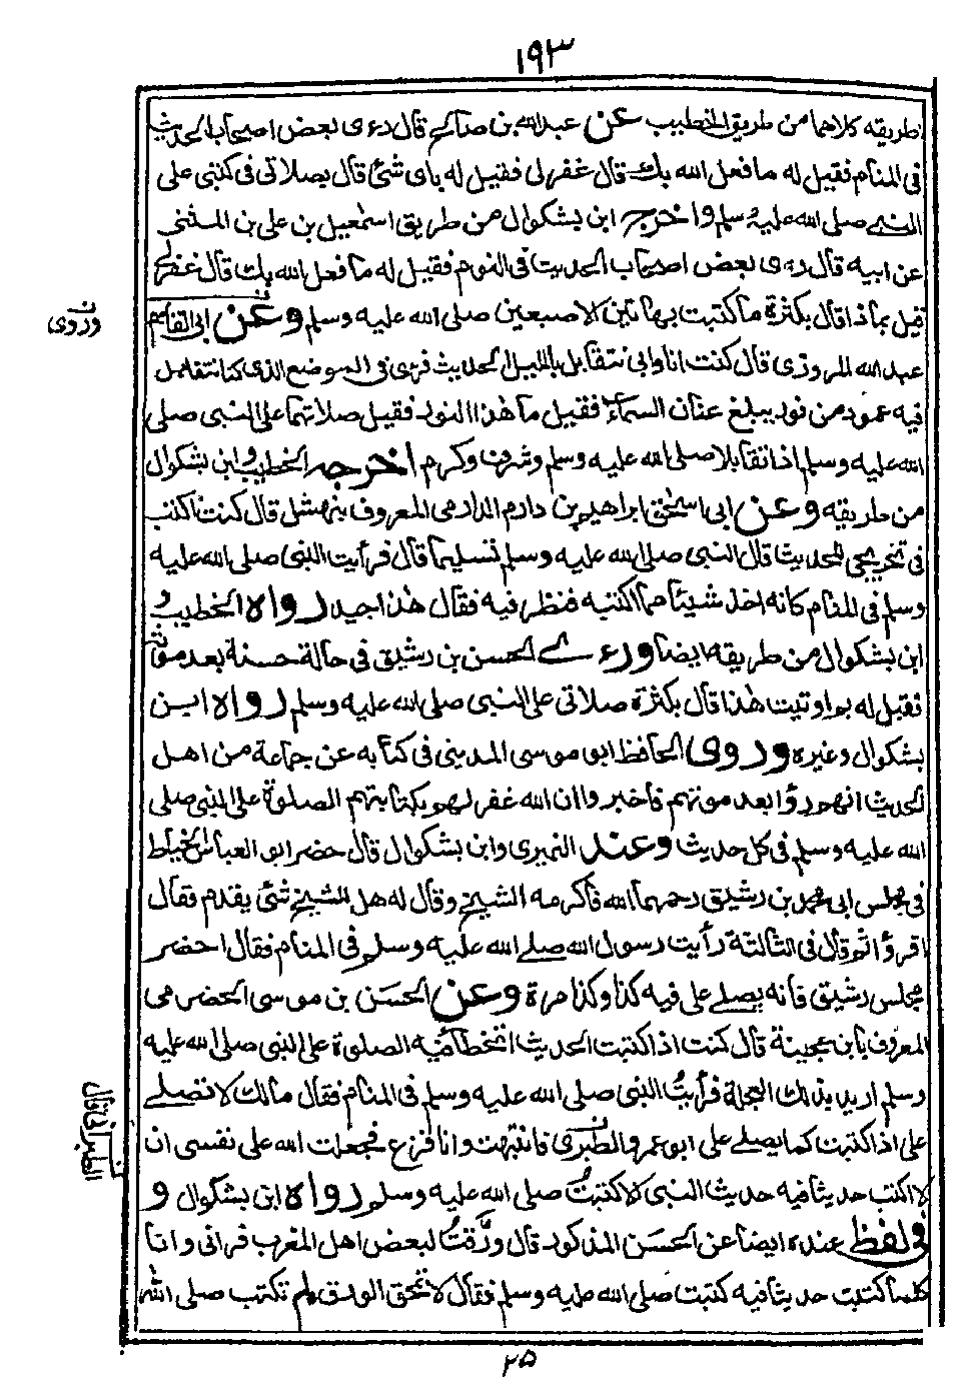 ١٩٣
طريقه كلاهما من طريق الخطيب عن عبدالله بن صالح قال رءى بعض اصحاب الحديث
فى المنام فقيل له ما فعل الله بك قال غفر لى فقيل له باى شئ قال بصلاتى فى كتبى على
النبى صلى الله عليه وسلم واخرجه ابن بشكوال من طريق اسمعيل بن على بن المثنى
عن ابيه قال رءى بعض اصحاب الحديث فى النوم فقيل له ما فعل الله بك قال غفر لى
قيل بماذا قال بكثرة ما كتبت بهاتين الاصبعين صلى الله عليه وسلم وعن ابى القاسم
وروى
عبد الله المروزى قال كنت انا وابى نتقابل بالليل الحديث فرءى فى الموضع الذى كنا نتقابل
فيه عمود من نور يبلغ عنان السماء فقيل ما هذا النور فقيل صلاتهما على النبى صلى
الله عليه وسلم اذا تقابلا صلى الله عليه وسلم وشرف وكرم اخرجه الخطيب وابن بشكوال
من طريقه وعن ابى اسحق ابراهيم بن دارم الدارمى المعروف بنهشل قال كنت اكتب
فى تخريجى للحديث قال النبى صلى الله عليه وسلم تسليما قال فرأيت النبى صلى الله عليه
وسلم فى المنام كانه اخذ شيئا مما اكتبه فنظر فيه فقال هذا جيد رواه الخطيب و
ابن بشكوال من طريقه ايضا ورءى الحسن بن رشيق فى حالة حسنة بعد موته
فقيل له بم اوتيت هذا قال بكثرة صلاتى على النبى صلى الله عليه وسلم رواه ابن
بشكوال وغيره وروى الحافظ ابو موسى المدينى فى كتابه عن جماعة من اهل
الحديث انهم رؤا بعد موتهم فاخبروا ان الله غفر لهم بكتابتهم الصلوة على النبى صلى
الله عليه وسلم فى كل حديث وعند النميرى وابن بشكوال قال حضر ابو العباس الخياط
فى مجلس ابى محمد بن رشيق رحمهما الله فاكرمه الشيخ وقال له هل للشيخ شئ يقدم فقال
اقرؤا ثم قال فى الثالثة رأيت رسول الله صلى الله عليه وسلم فى المنام فقال احضر
مجلس رشيق فانه يصلى على فيه كذا وكذا مرة وعن الحسن بن موسى الحضرمى
المعروف بابن عجينة قال كنت اذا كتبت الحديث اتخطا فيه الصلوة على النبى صلى الله عليه
وسلم اريد بذلك العجلة فرأيت النبى صلى الله عليه وسلم فى المنام فقال مالك لا تصلى
على اذا كتبت كما يصلى على ابو عمرو الطبرى فانتبهت وانا فزع فجعلت الله على نفسى ان
لا اكتب حديثا فيه حديث النبى الا كتبت صلى الله عليه وسلم رواه ابن بشكوال و
فى لفظ عنده ايضا عن الحسن المذكور قال ورّقت لبعض اهل المغرب فرانى وانا
كلما كتبت حديثا فيه كتبت صلى الله عليه وسلم فقال لا تمحق الورق لم تكتب صلى الله
٢٥